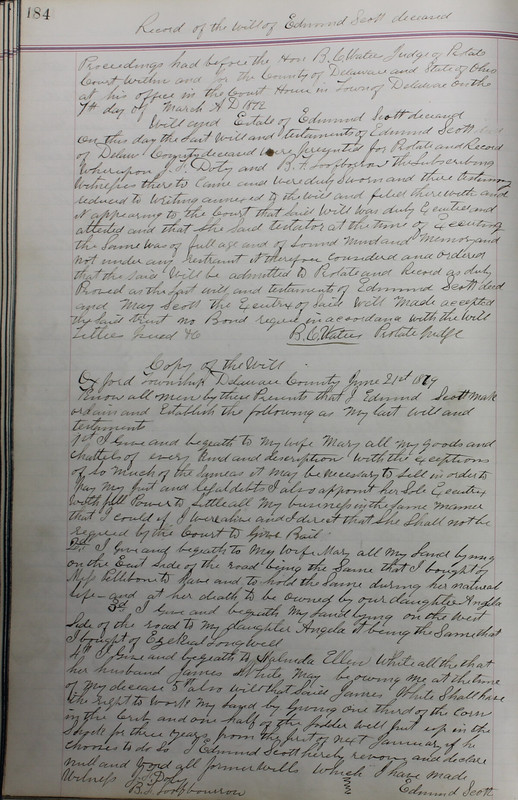 184
Record of the Will of Edmund Scott deceased
Proceedings had before the Hon B. C. Waters Judge of Probate
Court Within and for the County of Delaware and State of Ohio
at his office in the Court House in Town of Delaware on the
7th day of March A D 1872
Will and Estate of Edmund Scott deceased
On this day the Last Will and testament of Edmund Scott
of Delaw. County deceased were presented for Probate and Record
Whereupon Doty and B. F. Loofbourrow the Subscribing
Witnesses there to Came and were duly Sworn and there testimony
reduced to Writing annexed to the Will and filed therewith and
it appearing to the Court that Said Will was duly Executed and
attested and that the Said testator at the time of Executing
the Same was of full age and of Sound Mind and Memory and
not under any restraint it therefore considered and ordered
that the Said Will be admitted to Probate and Record as duly
Proved as the Last will and testament of Edmund Scott decd
and Mary Scott the Executrix of Said Will Made accepted
the Said trust no Bond required in accordance with the Will
Letters issued &c B. C. Waters Probate Judge
Copy of the Will
Oxford Township Delaware County June 21st
Know all men by these Presents that I Edmund Scott make
ordain and Establish the following as My last will and
testament
1st I Give and begeath to My wife Mary all my goods and
chattels of every kind and description with the Exceptions
of So much of the Same as it may be necessary to Sell in order to
Pay My just and lawful debts I also appoint her Sole Executrix
With full Power to Settle all My business in the Same manner
that I could if I were alive and I direct that She Shall not be
required by the Court to Give Bail
2nd I Give and begeath to My Wife Mary all My Land lying
on the East Side of the road being the Same that I bought of
Pettibone to have and to hold the Same during her natural
life and at her death to be owned by our daughter Angela
3d I Give and begeath My Land lying on the West
Side of the road to My daughter Angela it being the Same that
I bought of Ezekeal Longwell
4th I Give and begeath to Ellen White all the that
her husband James White May be owing me at the time
of My decease 5th also will that Said James White Shall have
the right to Work My Land by Giving one third of the corn
in the Crib and one half of the fodder well put up in the
Shock for three years from the first of next January if he
chooses to do So I Edmund Scott hereby revoke and declare
null and void all former wills which I have made
Witness Doty Edmund Scott
B. F. Loofbourrow